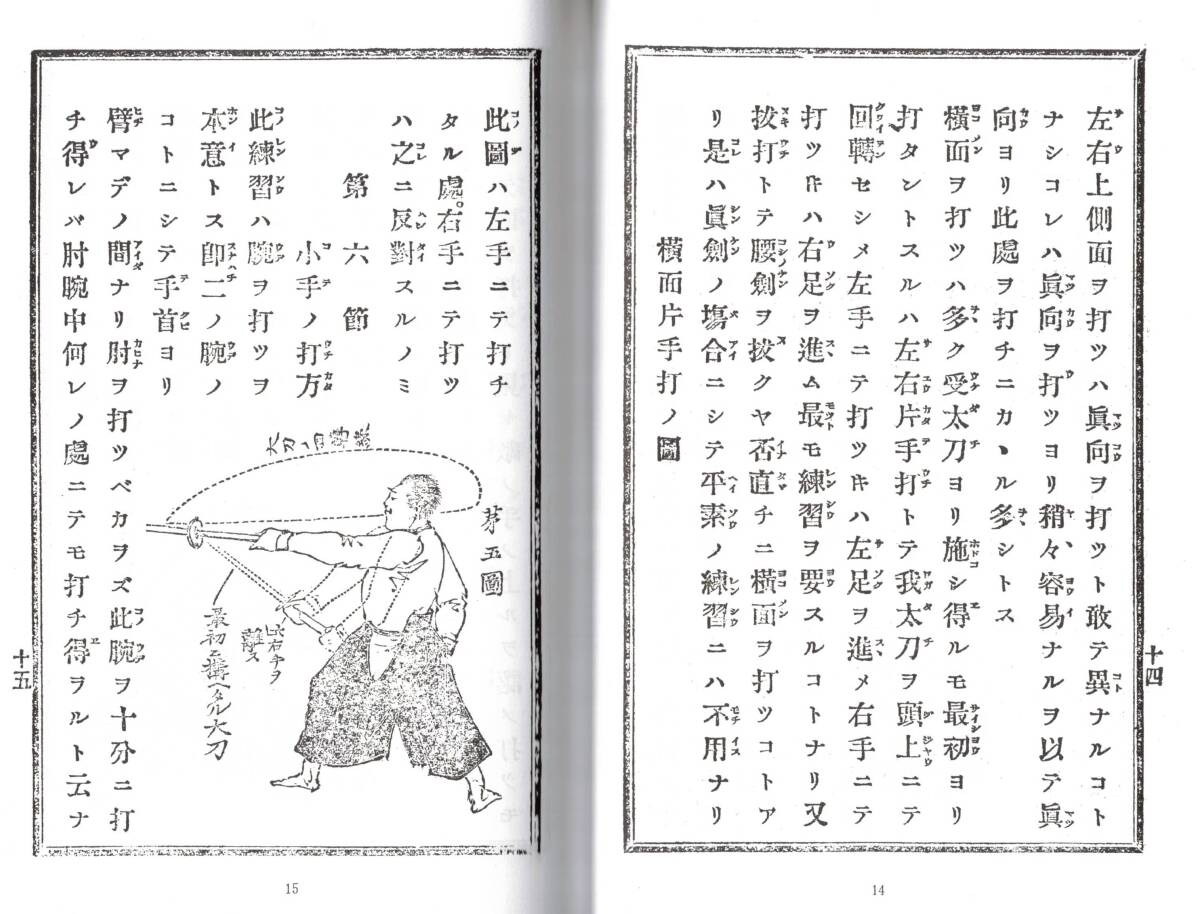 左右上側面ヲ打ツハ眞向ヲ打ツト敢テ異ナルコト
ナシコレハ眞向ヲ打ツヨリ稍々容易ナルヲ以テ眞
向ヨリ此處ヲ打チニカヽル多シトス
橫面ヲ打ツハ多ク受太刀ヨリ施シ得ルモ最初ヨリ
打タントスルハ左右片手打トテ我太刀ヲ頭上ニテ
回轉セシメ左手ニテ打ツトキハ左足ヲ進メ右手ニテ
打ツトキハ右足ヲ進ム最モ練習ヲ要スルコトナリ又
拔打トテ腰劍ヲ拔クヤ否直チニ橫面ヲ打ツコトア
リ是ハ眞劍ノ塲合ニシテ平素ノ練習ニハ不用ナリ
橫面片手打ノ圖
十四
14
此圖ハ左手ニテ打チ
タル處。右手ニテ打ツ
ハ之ニ反對スルノミ
第六節
小手ノ打方
此練習ハ腕ヲ打ツヲ
本意トス卽二ノ腕ノ
コトニシテ手首ヨリ
臂マデノ間ナリ肘ヲ打ツベカヲズ此腕ヲ十分ニ打
チ得レバ肘腕中何レノ處ニテモ打チ得ヲルト云ナ
第五圖
此右手ヲ
離ス
最初ニ搆ヘタル大刀
十五
15